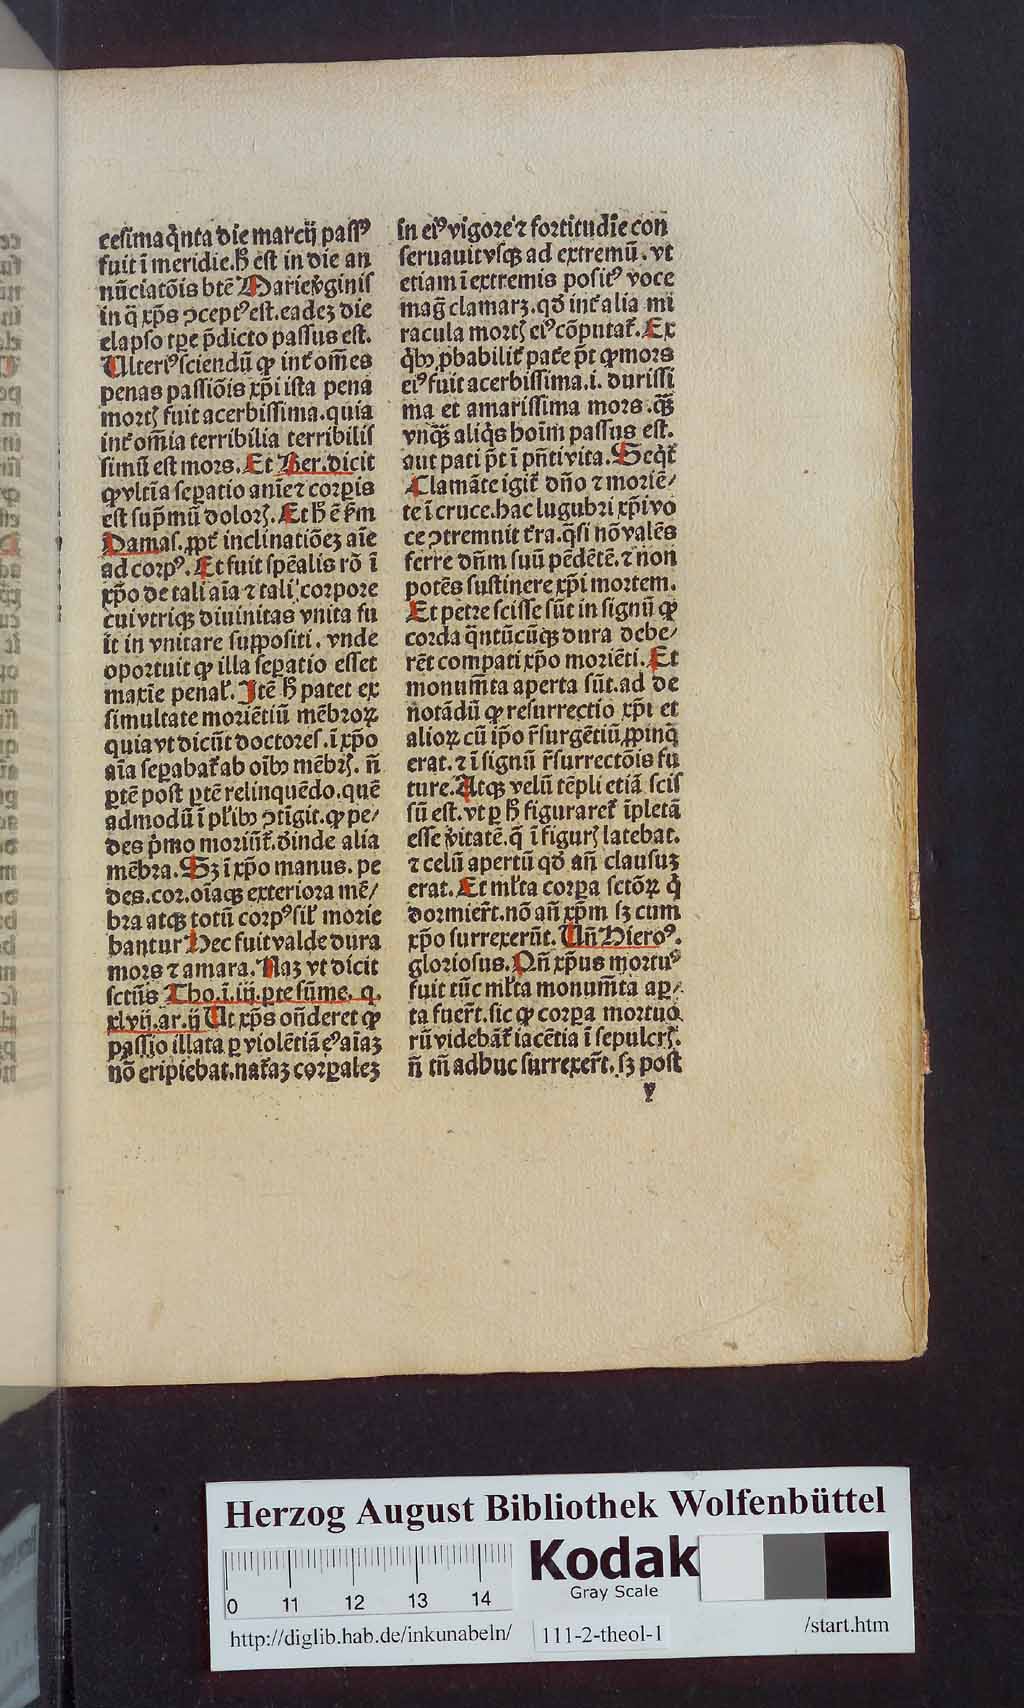 cesima q̇nta die marcij passꝰ
fuit ī meridie.h̄ est in die an
nūciatōis btē Marie v̓ginis
in q̄ xp̄s ↄceptꝰ est.eadeꝫ die
elapso tꝑe p̄dicto passus est.
Ulteriꝰ sciendū ꝙ int̓ om̄es
penas passiōis xp̄i ista pena
mortꝭ fuit acerbissima.quia
int̓ om̄ia terribilia terribilis
simū est mors. Et Ber.dicit
ꝙ vltīa seꝑatio anīe ⁊ corꝑis
est sup̄mū dolorꝭ. Et h̄ ē k̓m
Damas.ꝓpt̓ inclinatiōeꝫ aīe
ad corpꝰ. Et fuit spēalis rō ī
xp̄o de tali aīa ⁊ tali corpore
cui vtriqꝫ diuinitas vnita fu
it in vnitare suppositi. vnde
oportuit ꝙ illa seꝑatio esset
maxīe penal̓. Itē h̄ patet ex
simultate moriētiū mēbroꝝ
quia vt dicūt doctores.ī xp̄o
aīa seꝑabat̓ ab oībꝰ mēbrꝭ. n̄
ꝑtē post ꝑtē relinquēdo.quē
admodū ī pl̓ibꝰ ↄtīgit.ꝙ pe/
des p̓mo moriūt̓.d̓inde alia
mēbra. Sꝫ ī xp̄o manus. pe
des.cor.oīaqꝫ exteriora mē/
bra atqꝫ totū corpꝰ sil̓ morie
bantur Hec fuit valde dura
mors ⁊ amara. Naꝫ vt dicit
sctūs Tho.ī.iij.ꝑte sūme. q.
xlvij.ar.ij Ut xp̄s on̄deret ꝙ
passio illata ꝑ violētiā eꝰ aīaꝫ
nō eripiebat.nat̓aꝫ corꝑaleꝫ
in eiꝰ vigore ⁊ fortitudīe con
seruauit vsqꝫ ad extremū. vt
etiam ī extremis positꝰ voce
maḡ clamarꝫ.qđ int̓ alia mi
racula mortꝭ eiꝰ cōputat̓. Ex
q̇bꝰ ꝓbabilit̓ pat̓e p̄t ꝙ mors
eiꝰ fuit acerbissima.i. durissi
ma et amarissima mors.qꝫ̄
vnqꝫ̄ aliq̇s hoīm passus est.
aut pati p̄t ī pn̄ti vita. Seq̇t̓
Clamāte igit̓ dn̄o ⁊ moriē/
te ī cruce.hac lugubri xp̄i vo
ce ↄtremuit t̓ra.q̄si nō valēs
ferre dn̄m suū pēdētē.⁊ non
potēs sustinere xp̄i mortem.
Et petre scisse sūt in signū ꝙ
corda q̄ntūcūqꝫ dura debe/
rēt compati xp̄o moriēti. Et
monum̄ta aperta sūt.ad de
notādū ꝙ resurrectio xp̄i et
alioꝝ cū ip̄o r̄surgētiū ꝓpinq̄
erat. ⁊ ī signū r̄surrectōis fu
ture. Atqꝫ velū tēpli etiā scis
sū est.vt ꝑ h̄ figuraret̓ īpletā
esse v̓itatē.q̄ ī figurꝭ latebat.
⁊ celū apertū qđ an̄ clausuꝫ
erat. Et ml̓ta corꝑa sctōꝝ q̇
dormier̄t.nō an̄ xp̄m sꝫ cum
xp̄o surrexerūt. Un̄ Hieroꝰ.
gloriosus. Qn̄ xp̄us mortuꝰ
fuit tūc ml̓ta monum̄ta aꝑ/
ta fuer̄t.sic ꝙ corꝑa mortuo
rū videbāt̓ iacētia ī sepulcrꝭ.
n̄ tn̄ adhuc surrexer̄t. sꝫ post
y
Herzog August Bibliothek Wolfenbüttel
Kodak
Gray Scale
0 11 12 13 14
http://diglib.hab.de/inkunabeln/ 111-2-theol-1 /start.htm